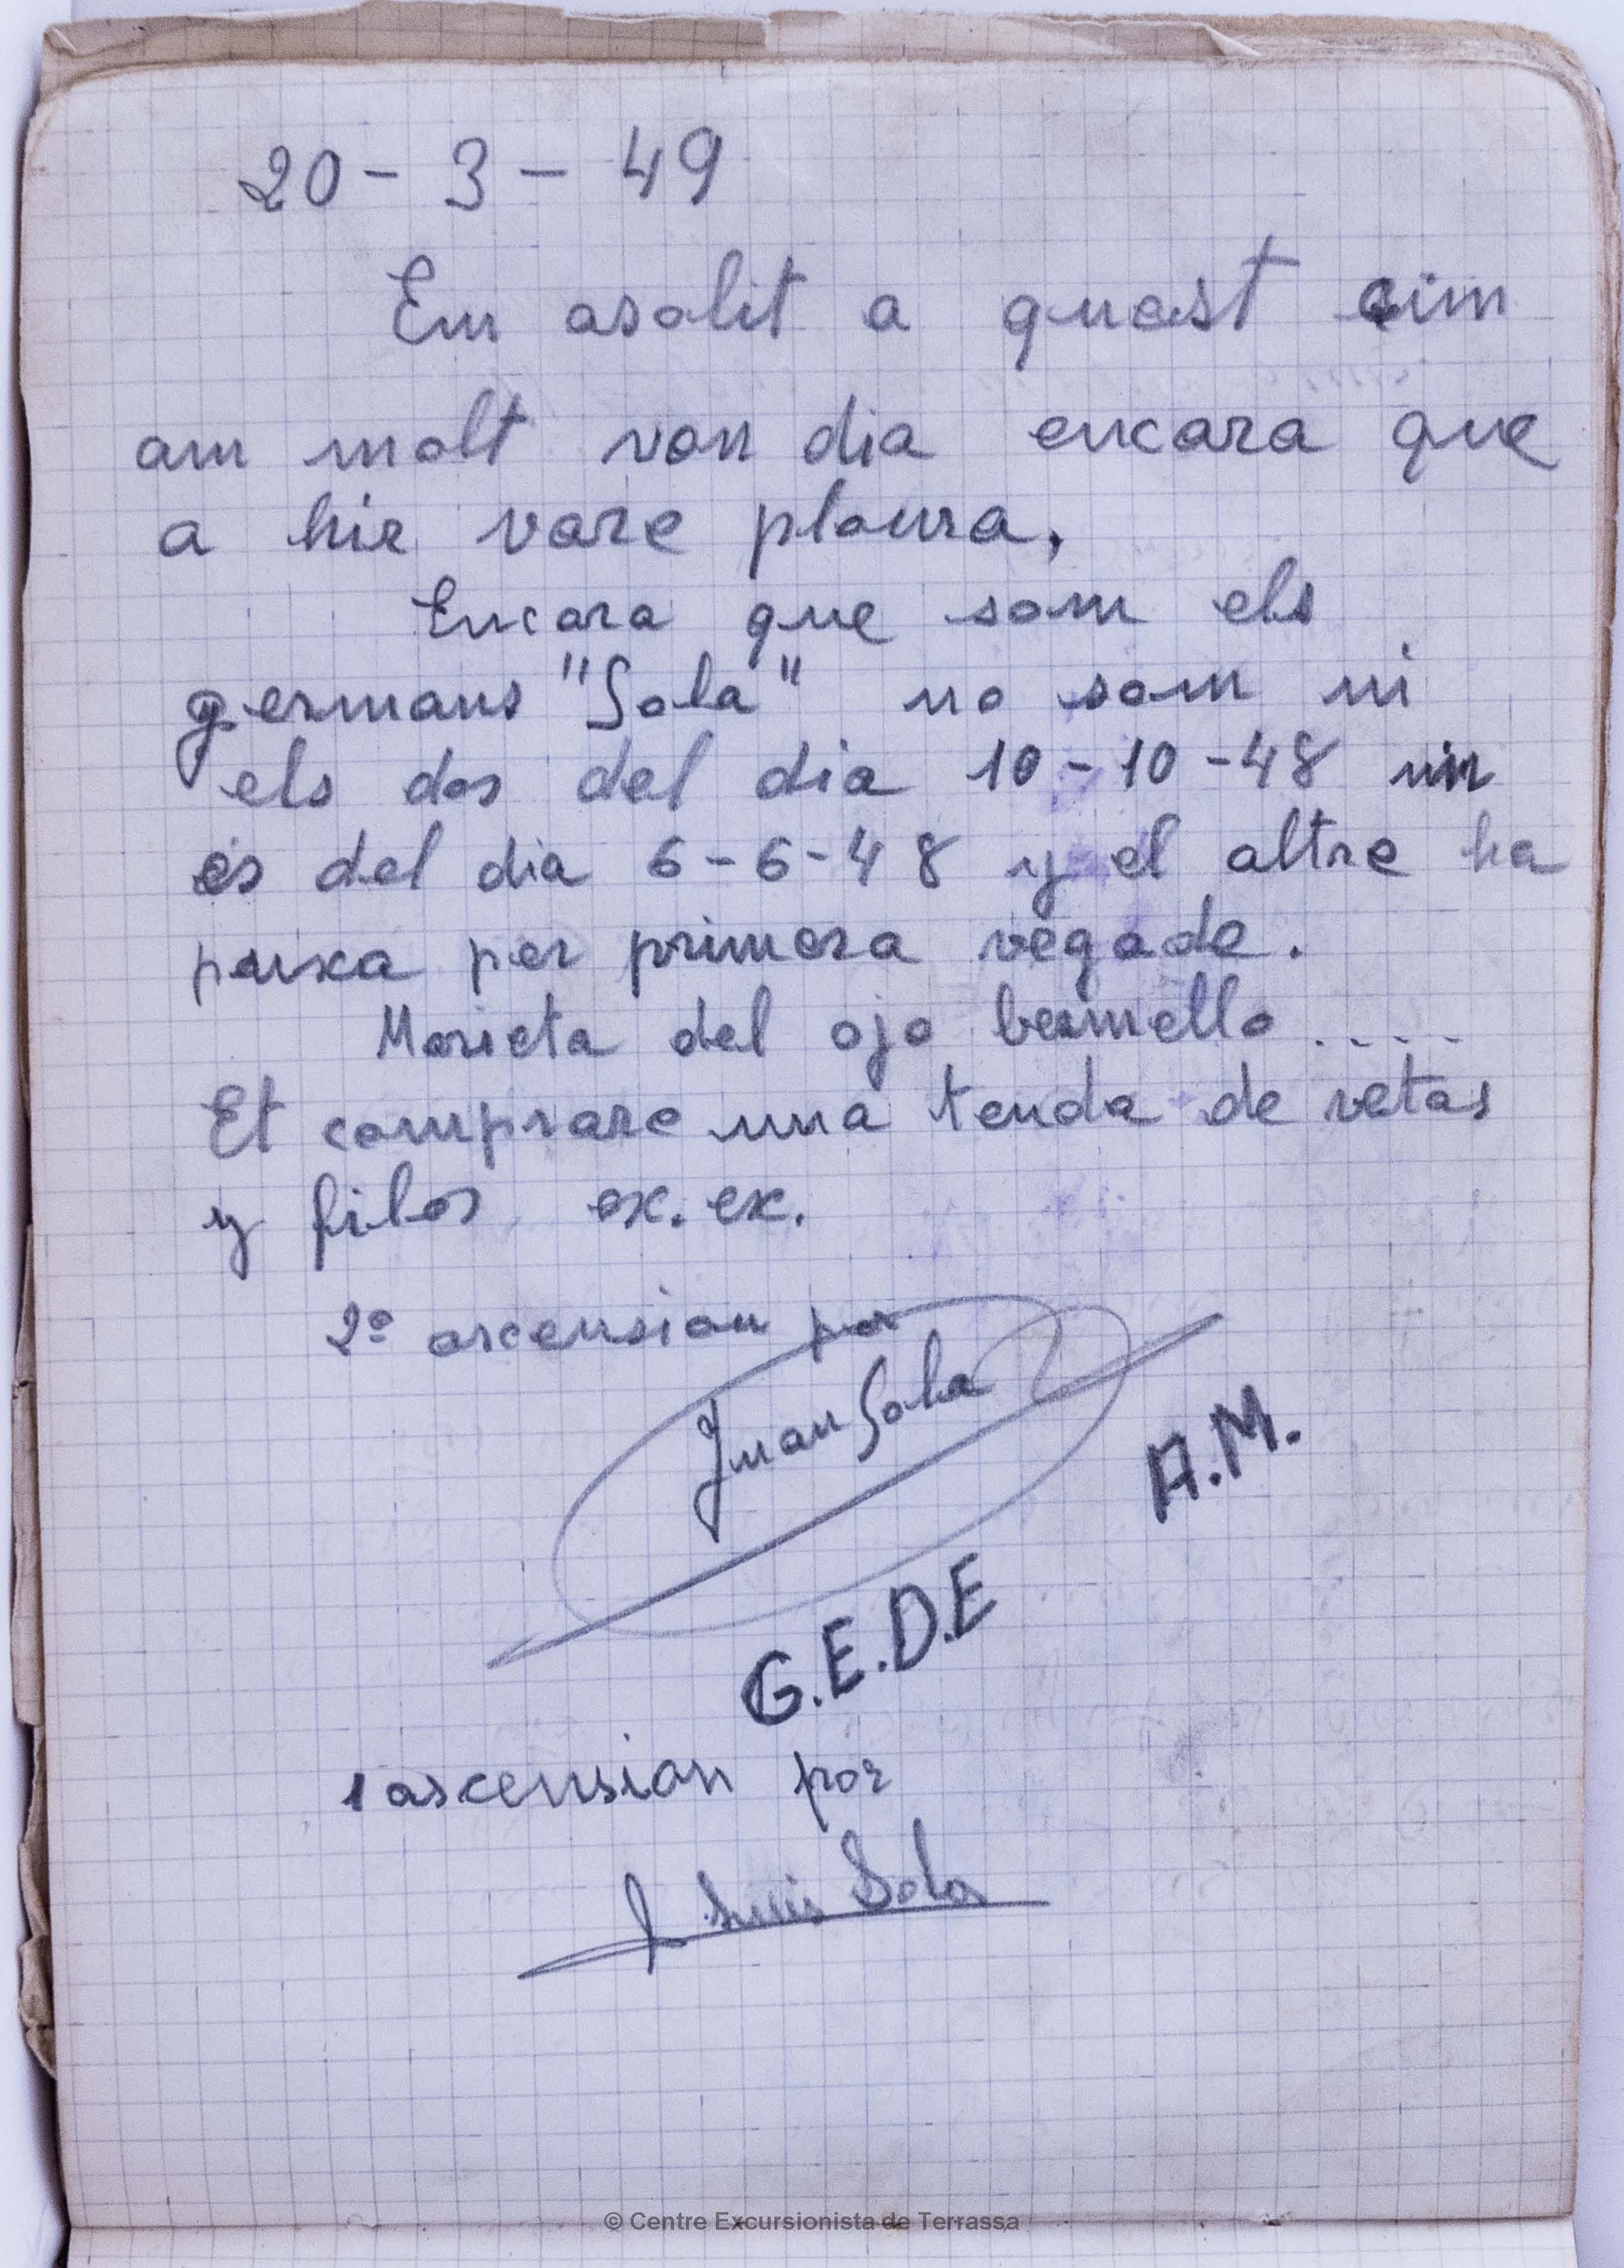 20 - 3 - 49
Em asolit a quest cim
am molt von dia encara que
a hir vare ploura.
Encara que som els
germans "Sola" no som ni
els dos del dia 10-10-48 un
és del dia 6-6-48 y el altre ha
puxa per primera vegade.
Marieta del ojo bermello .....
Et comprare una tenda de vetas
y filos ex. ex.
2º ascension por
Juan Sola
A.M.
G.E.D.E
1 ascension por
Luis Sola
© Centre Excursionista de Terrassa